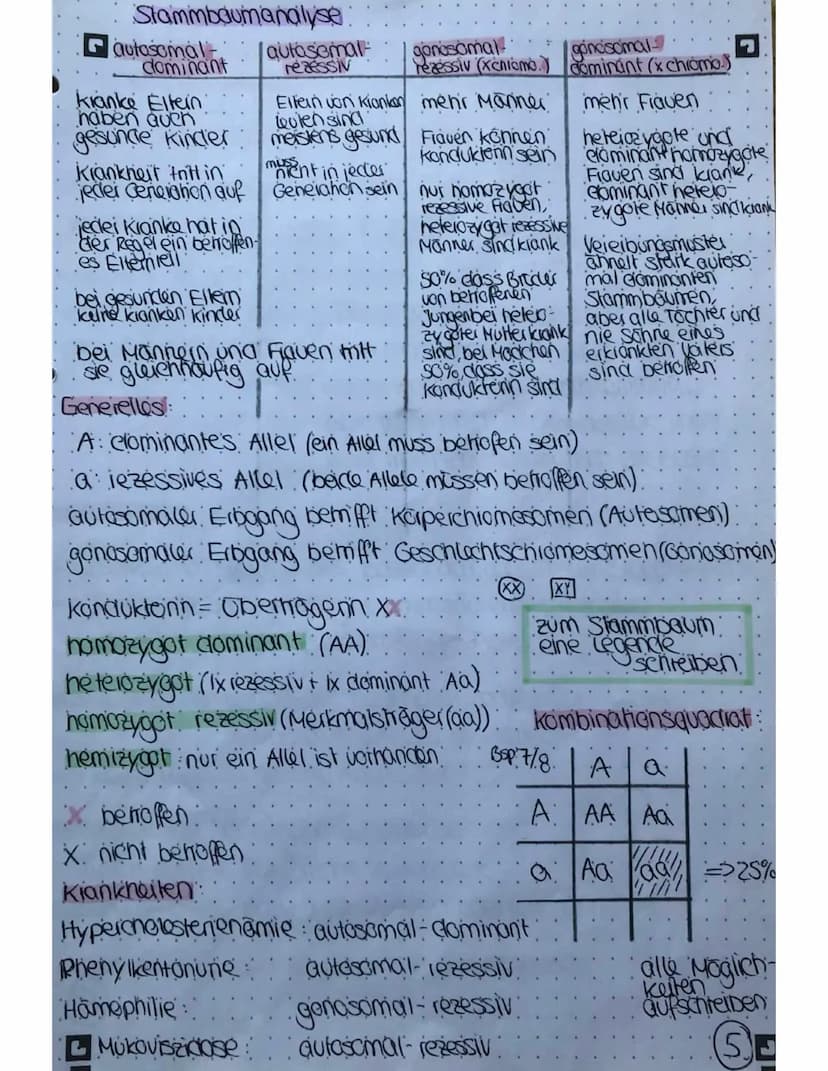 Stammbaumanalyse
autosomal-
dominant
kranke Eltern
haben auch
gesunde Kinder
Krankheit tritt in
jeder Generation auf
jeder Kranke hat in
der Regel ein betroffen-
es Elternteil
bei gesunden Eltern
keine kranken Kinder
bei Männern und Frauen tritt
sie gleichhäufig auf
autosomal-
rezessiv
Eltern von kranken
leuten sind
meistens gesund
muss
nicht in jeder
Generation sein
gonosomal-
rezessiv (x chromo.)
mehr Männer
Frauen können
Konduktorin sein
nur homozygot
rezessive Frauen,
heterozygot rezessive
Männer sind krank
50% dass Brüder
von betroffenen
Jungen bei hetero-
zygoter Mutter krank
sind, bei Mädchen
50%, dass sie
Konduktorin sind
gonosomal-
dominant (x chromo.)
mehr Frauen
heterozygote und
dominant homozygote
Frauen sind krank,
dominant hetero-
zygote Männer sind krank
Vererbungsmuster
ähnelt stark autoso-
mal dominanten
Stammbäumen,
aber alle Töchter und
nie Söhne eines
erkrankten Vaters
sind betroffen
Generelles:
A: dominantes Allel (ein Allel muss betroffen sein)
a: rezessives Allel (beide Allele müssen betroffen sein)
autosomaler Erbgang betrifft Körperchromosomen (Autosomen)
gonosomaler Erbgang betrifft Geschlechtschromosomen (Gonosomen)
XX XY
Konduktorin = Überträgerin XX
homozygot dominant (AA)
heterozygot (1x rezessiv + 1x dominant Aa)
homozygot rezessiv (Merkmalsträger (aa))
hemizygot: nur ein Allel ist vorhanden
zum Stammbaum
eine Legende
schreiben
X betroffen
X nicht betroffen
Kombinationsquadrat:
Bsp 7/8 A a
A AA Aa
a Aa aa => 25%
alle Möglich-
keiten
aufschreiben
Krankheiten:
Hypercholosterienämie: autosomal-dominant
Phenylkentonurie: autosomal-rezessiv
Hämophilie: gonosomal-rezessiv
Mukoviszidose: autosomal-rezessiv
5